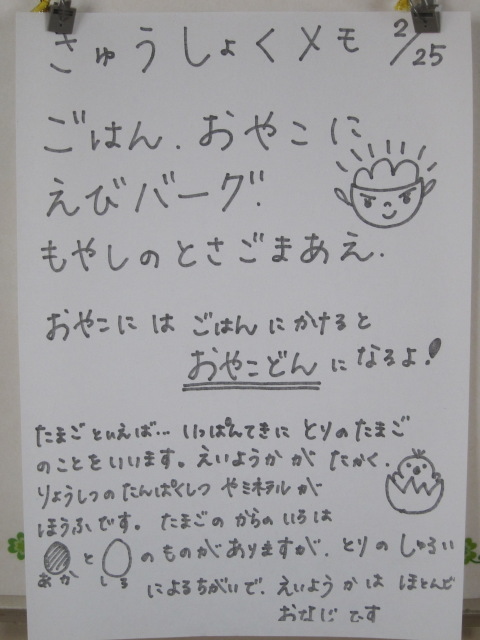 きゅうしょくメモ 2/25
ごはん.おやこに
えびバーグ.
もやしのとさごまあえ.
おやこには ごはんにかけると
おやこどん になるよ!
たまごといえば… いっぱんてきに とりのたまご
のことをいいます。えいようかが たかく、
りょうしつのたんぱくしつ やミネラルが
ほうふです。たまごの からのいろは
と のものがありますが、とりの しゅるい
あか しろ
によるちがいで、えいようかは ほとんど
おなじです